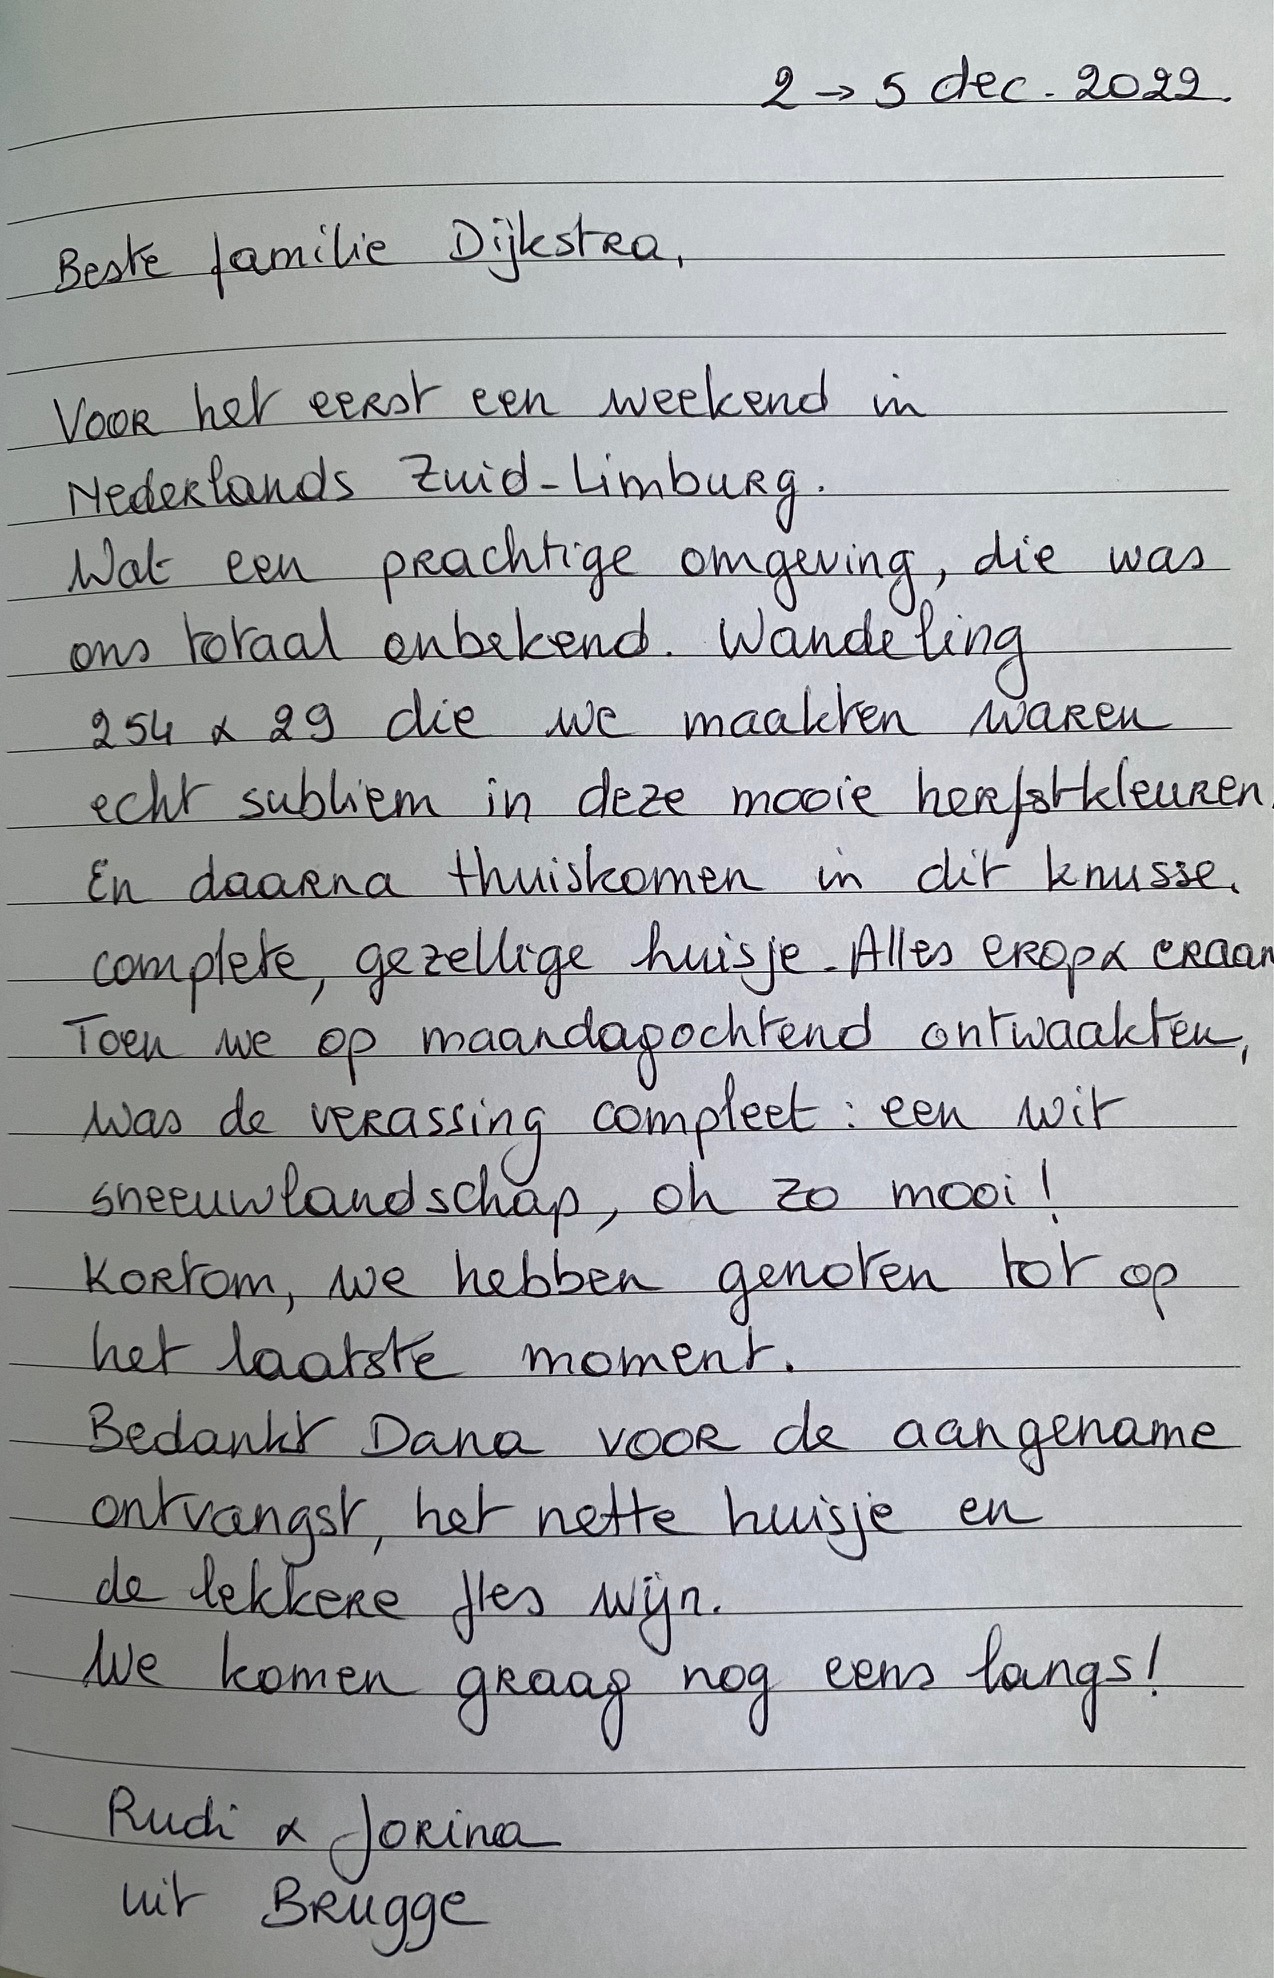 2 → 5 dec. 2022.
Beste familie Dijkstra,
Voor het eerst een weekend in
Nederlands Zuid-Limburg.
Wat een prachtige omgeving, die was
ons totaal onbekend. Wandeling
254 & 29 die we maakten waren
echt subliem in deze mooie herfstkleuren.
En daarna thuiskomen in dit knusse,
complete, gezellige huisje. Alles erop & eraan
Toen we op maandagochtend ontwaakten,
was de verassing compleet : een wit
sneeuwlandschap, oh zo mooi!
Kortom, we hebben genoten tot op
het laatste moment.
Bedankt Dana voor de aangename
ontvangst, het nette huisje en
de lekkere fles wijn.
We komen graag nog eens langs!
Rudi & Jorina
uit Brugge